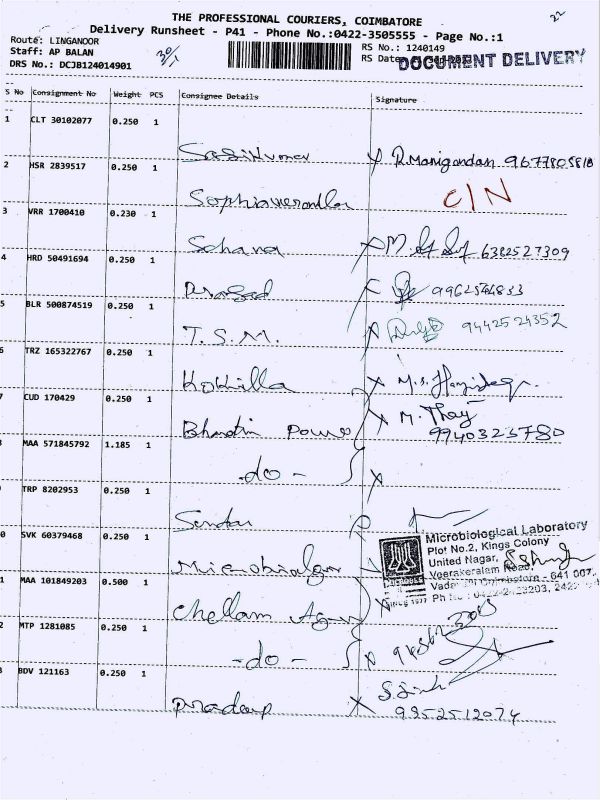 22
THE PROFESSIONAL COURIERS, COIMBATORE
Delivery Runsheet - P41 - Phone No.:0422-3505555 - Page No.:1
Route: LINGANOOR
Staff: AP BALAN
DRS No.: DCJB124014901
30/1
RS No.: 1240149
RS Date
DOCUMENT DELIVERY
S No Consignment No Weight PCS Consignee Details Signature
1 CLT 30102077 0.250 1
Sasikumar X R.Manigandan 9677805810
2 HSR 2839517 0.250 1
C/N
3 VRR 1700410 0.230 1
Sahana X M. 6382527309
4 HRD 50491694 0.250 1
Prasad
5 BLR 500874519 0.250 1
T.S.M. 9442524352
6 TRZ 165322767 0.250 1
Kokilla X M.S.
7 CUD 170429 0.250 1
Bharathi Power X M. Thay
9940323780
MAA 571845792 1.185 1
-do- X
TRP 8202953 0.250 1
0 SVK 60379468 0.250 1
Microbiological Laboratory
Plot No.2, Kings Colony
United Nagar,
Veerakeralam Road,
Coimbatore - 641 007.
1 MAA 101849203 0.500 1
Chellam
2 MTP 1281085 0.250 1
-do- X
3 BDV 121163 0.250 1
Pradeep X 9952512074